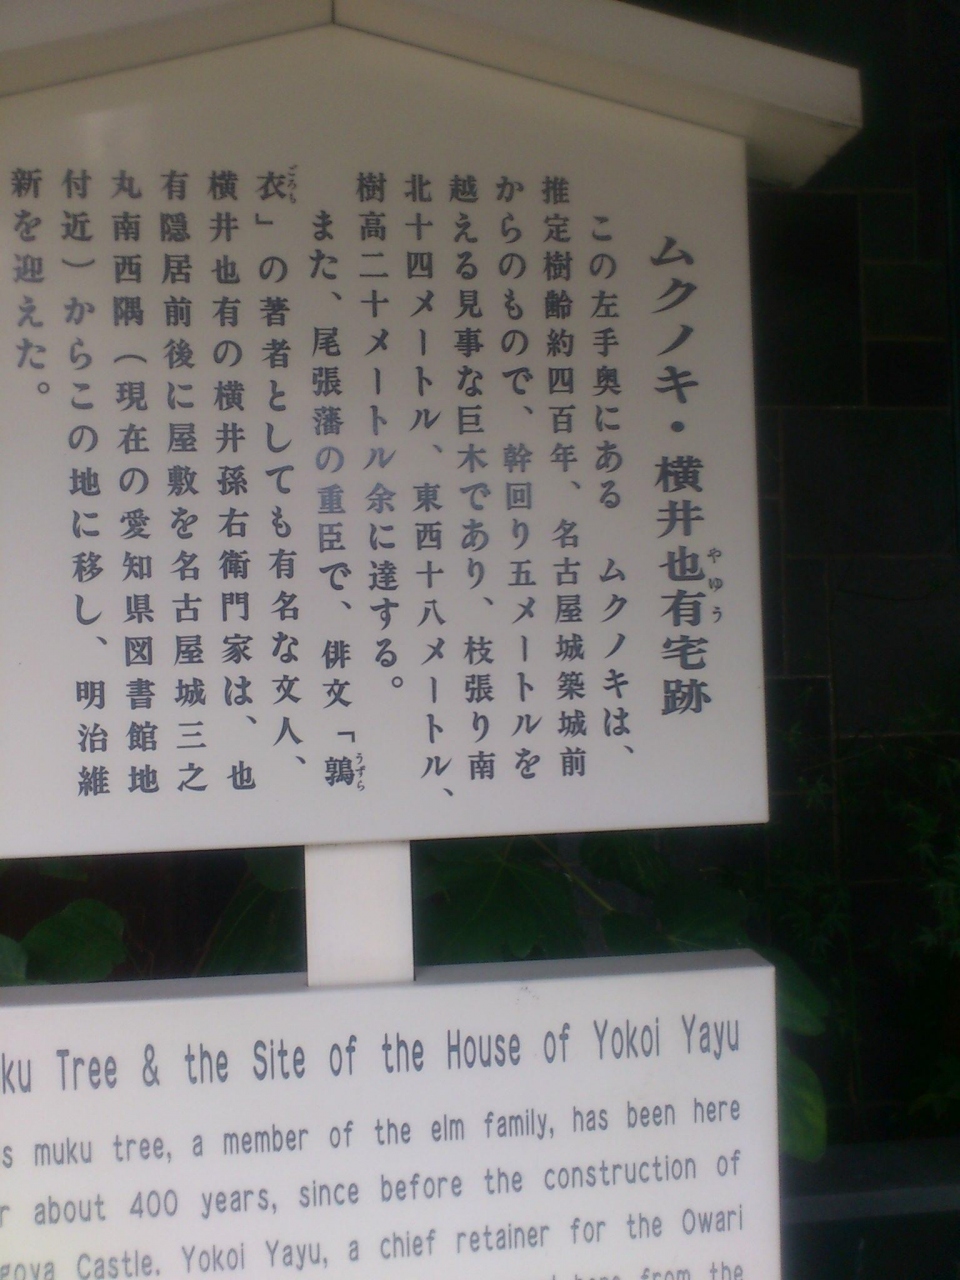 ムクノキ・横井也有宅跡
やゆう
この左手奥にある ムクノキは、
推定樹齢約四百年、名古屋城築城前
からのもので、幹回り五メートルを
越える見事な巨木であり、枝張り南
北十四メートル、東西十八メートル、
樹高二十メートル余に達する。
また、尾張藩の重臣で、俳文「鶉
うずら
衣」の著者としても有名な文人、
ごろも
横井也有の横井孫右衛門家は、也
有隠居前後に屋敷を名古屋城三之
丸南西隅（現在の愛知県図書館地
付近）からこの地に移し、明治維
新を迎えた。
ku Tree & the Site of the House of Yokoi Yayu
s muku tree, a member of the elm family, has been here
r about 400 years, since before the construction of
goya Castle. Yokoi Yayu, a chief retainer for the Owari
from the